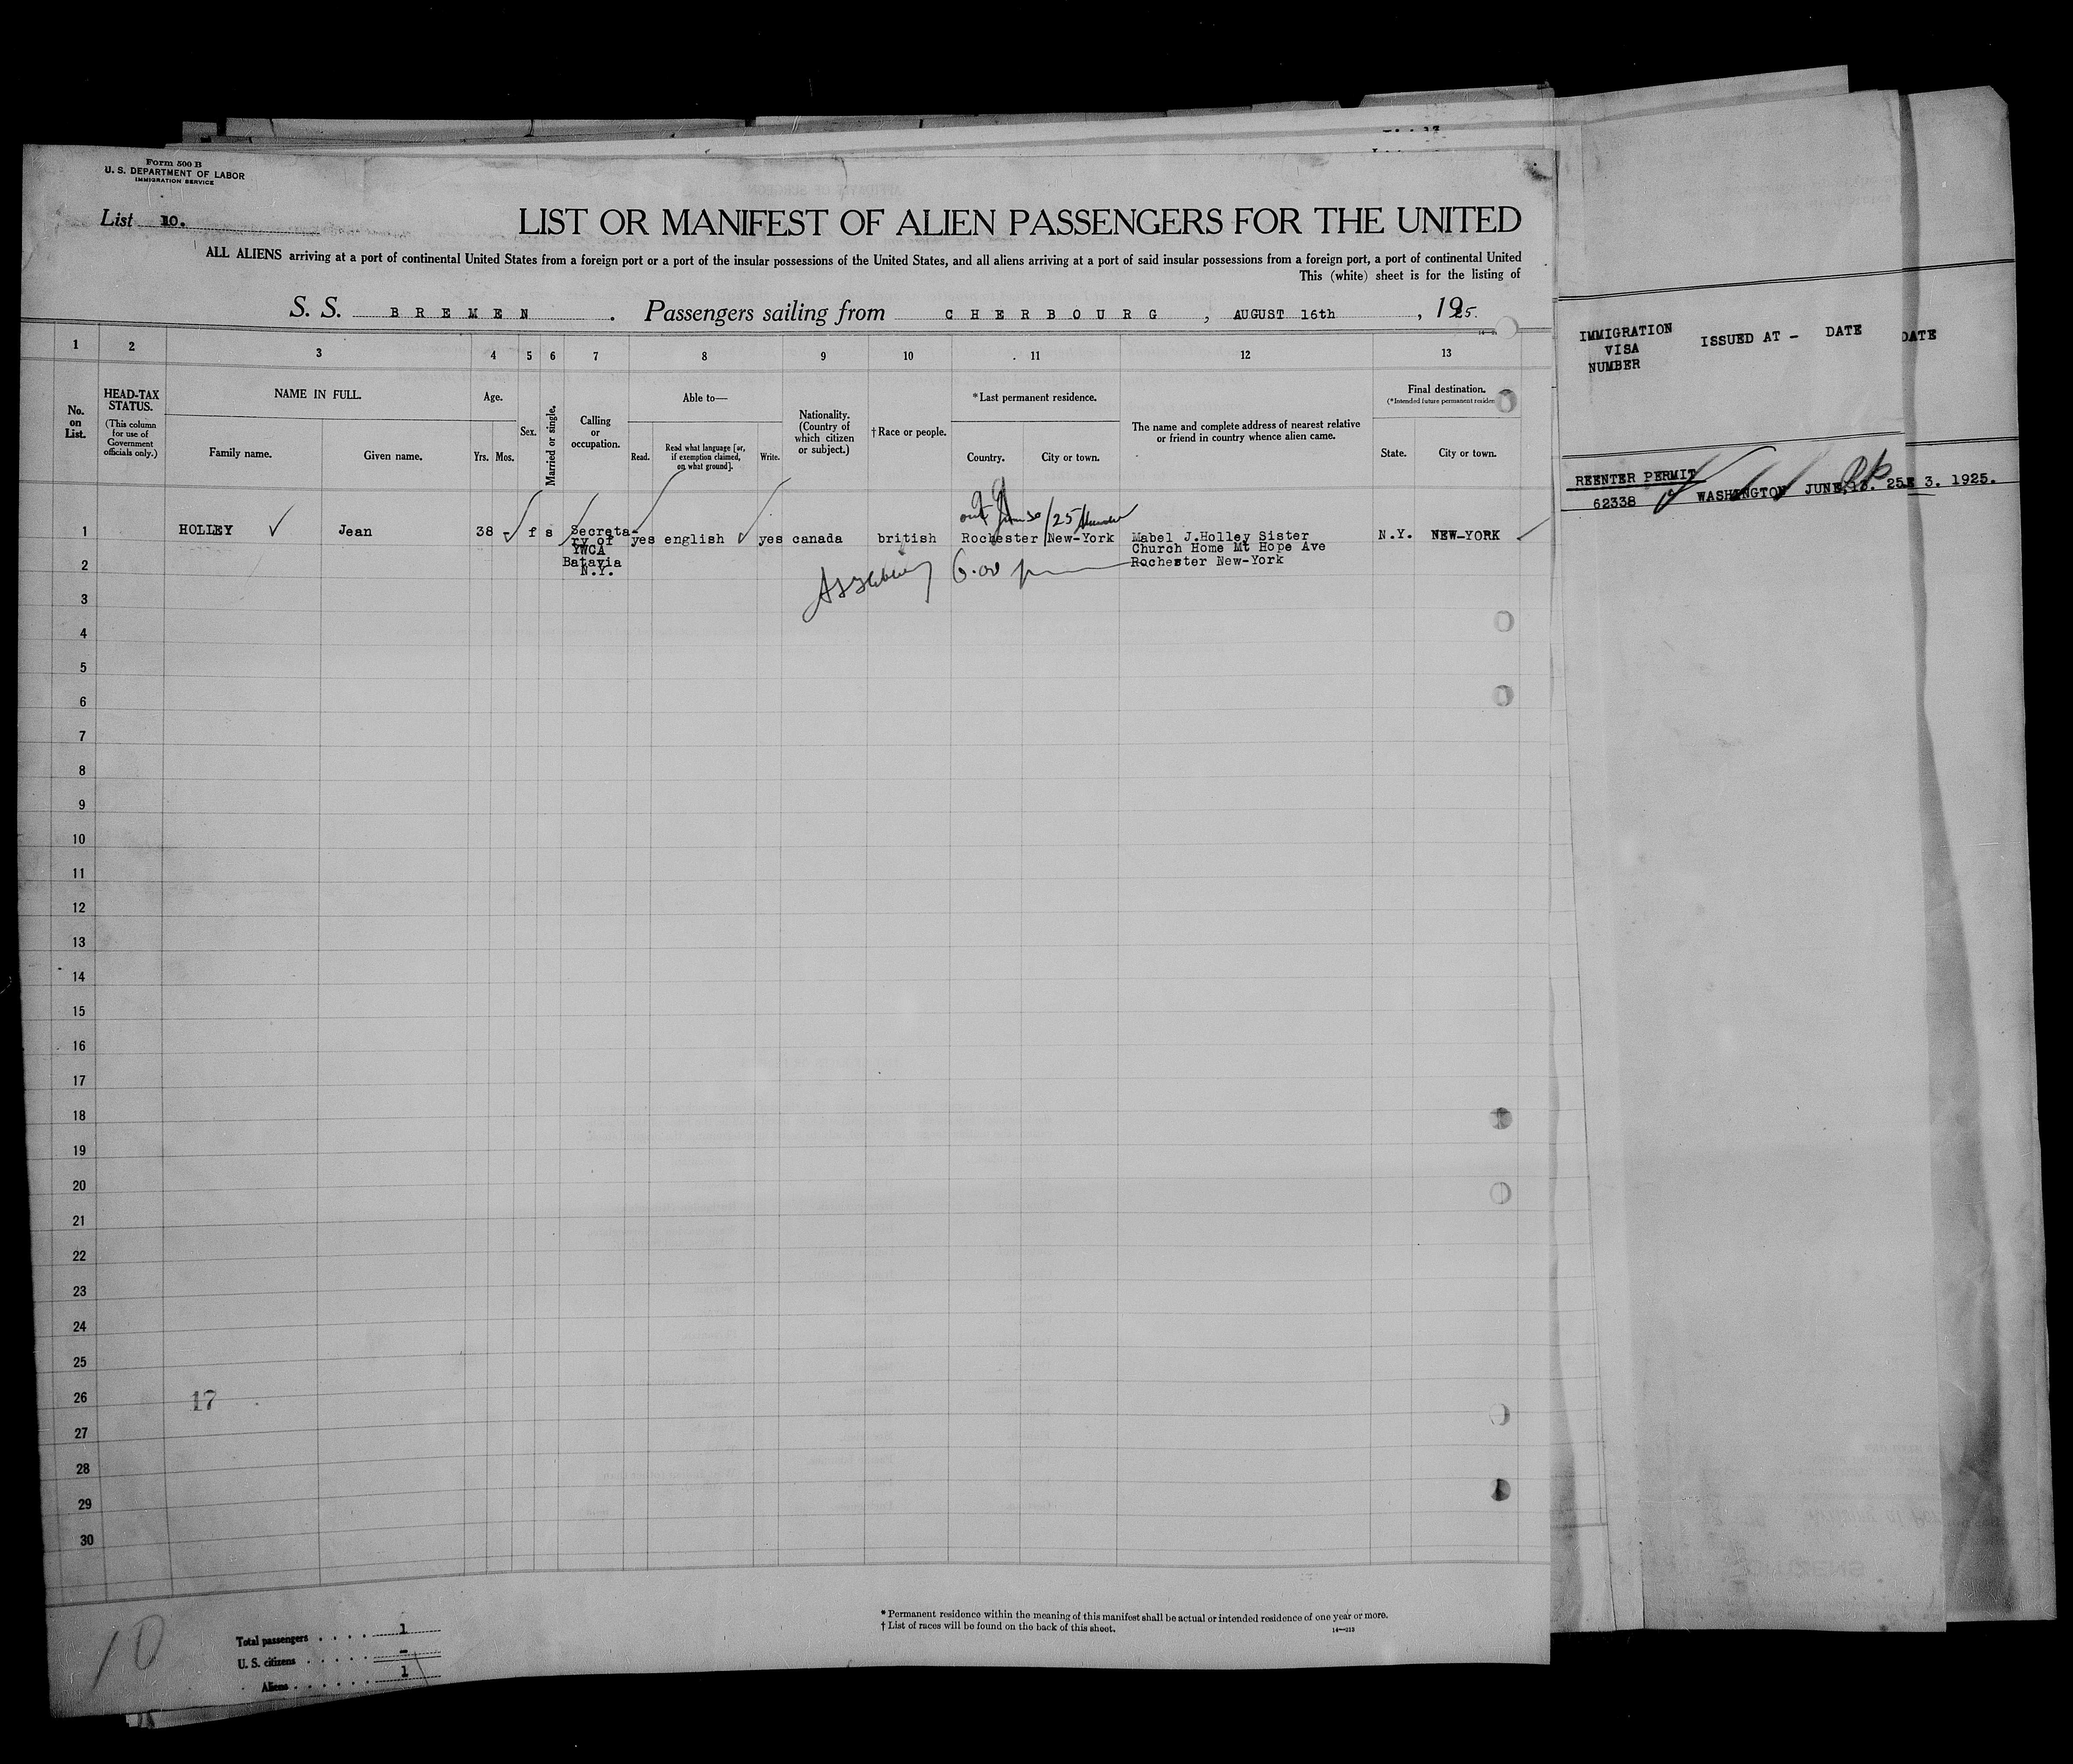 Form 500 B
U. S. DEPARTMENT OF LABOR
IMMIGRATION SERVICE
List 10.
LIST OR MANIFEST OF ALIEN PASSENGERS FOR THE UNITED
ALL ALIENS arriving at a port of continental United States from a foreign port or a port of the insular possessions of the United States, and all aliens arriving at a port of said insular possessions from a foreign port, a port of continental United
This (white) sheet is for the listing of
S. S. BREMEN. Passengers sailing from CHERBOURG, AUGUST 16th, 1925.
1 2 3 4 5 6 7 8 9 10 11 12 13
No. on List.
HEAD-TAX STATUS.
(This column for use of Government officials only.)
NAME IN FULL.
Family name. Given name.
Age.
Yrs. Mos.
Sex.
Married or single.
Calling or occupation.
Able to—
Read. Read what language [or, if exemption claimed, on what ground]. Write.
Nationality. (Country of which citizen or subject.)
†Race or people.
*Last permanent residence.
Country. City or town.
The name and complete address of nearest relative or friend in country whence alien came.
Final destination.
(*Intended future permanent residen
State. City or town.
IMMIGRATION VISA NUMBER ISSUED AT - DATE DATE
REENTER PERMIT
62338 WASHINGTON JUNE, 13. 25 E 3. 1925.
out
/25
1 HOLLEY Jean 38 f s Secretary of YWCA Batavia N.Y. yes english yes canada british Rochester New-York Mabel J.Holley Sister Church Home Mt Hope Ave Rochester New-York N.Y. NEW-YORK
6.00
2
3
4
5
6
7
8
9
10
11
12
13
14
15
16
17
18
19
20
21
22
23
24
25
26 17
27
28
29
30
10
Total passengers . . . . 1
U. S. citizens . . . . . -
Aliens . . . . . . 1
* Permanent residence within the meaning of this manifest shall be actual or intended residence of one year or more.
† List of races will be found on the back of this sheet.
14—213